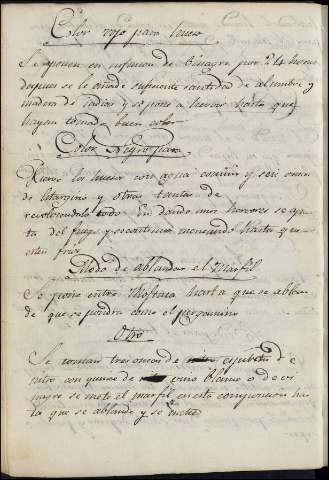 Color rojo para hueso
Se ponen en infusion de Vinagre por 24 horas
despues se le añade suficiente cantidad de alumbre y
madera de Indias y se pone a hervir hasta que
hayan tomado buen color
Color Negro para
los huesos con agua comun y seis onzas
de litargirio y otras tantas de
revolviendolo todo. En dando unos hervores se apar
ta del fuego y se continua meneando hasta qu
esten frios
Modo de ablandar el Marfil
Se pone entre Mostaza hasta que se ablan
de que se pondra como el pergamino
Otro
Se toman tres onzas de espiritu de
nitro con quince de vino blanco o de vi
nagre se mete el marfil en esta composicion has
ta que se ablande y se mete